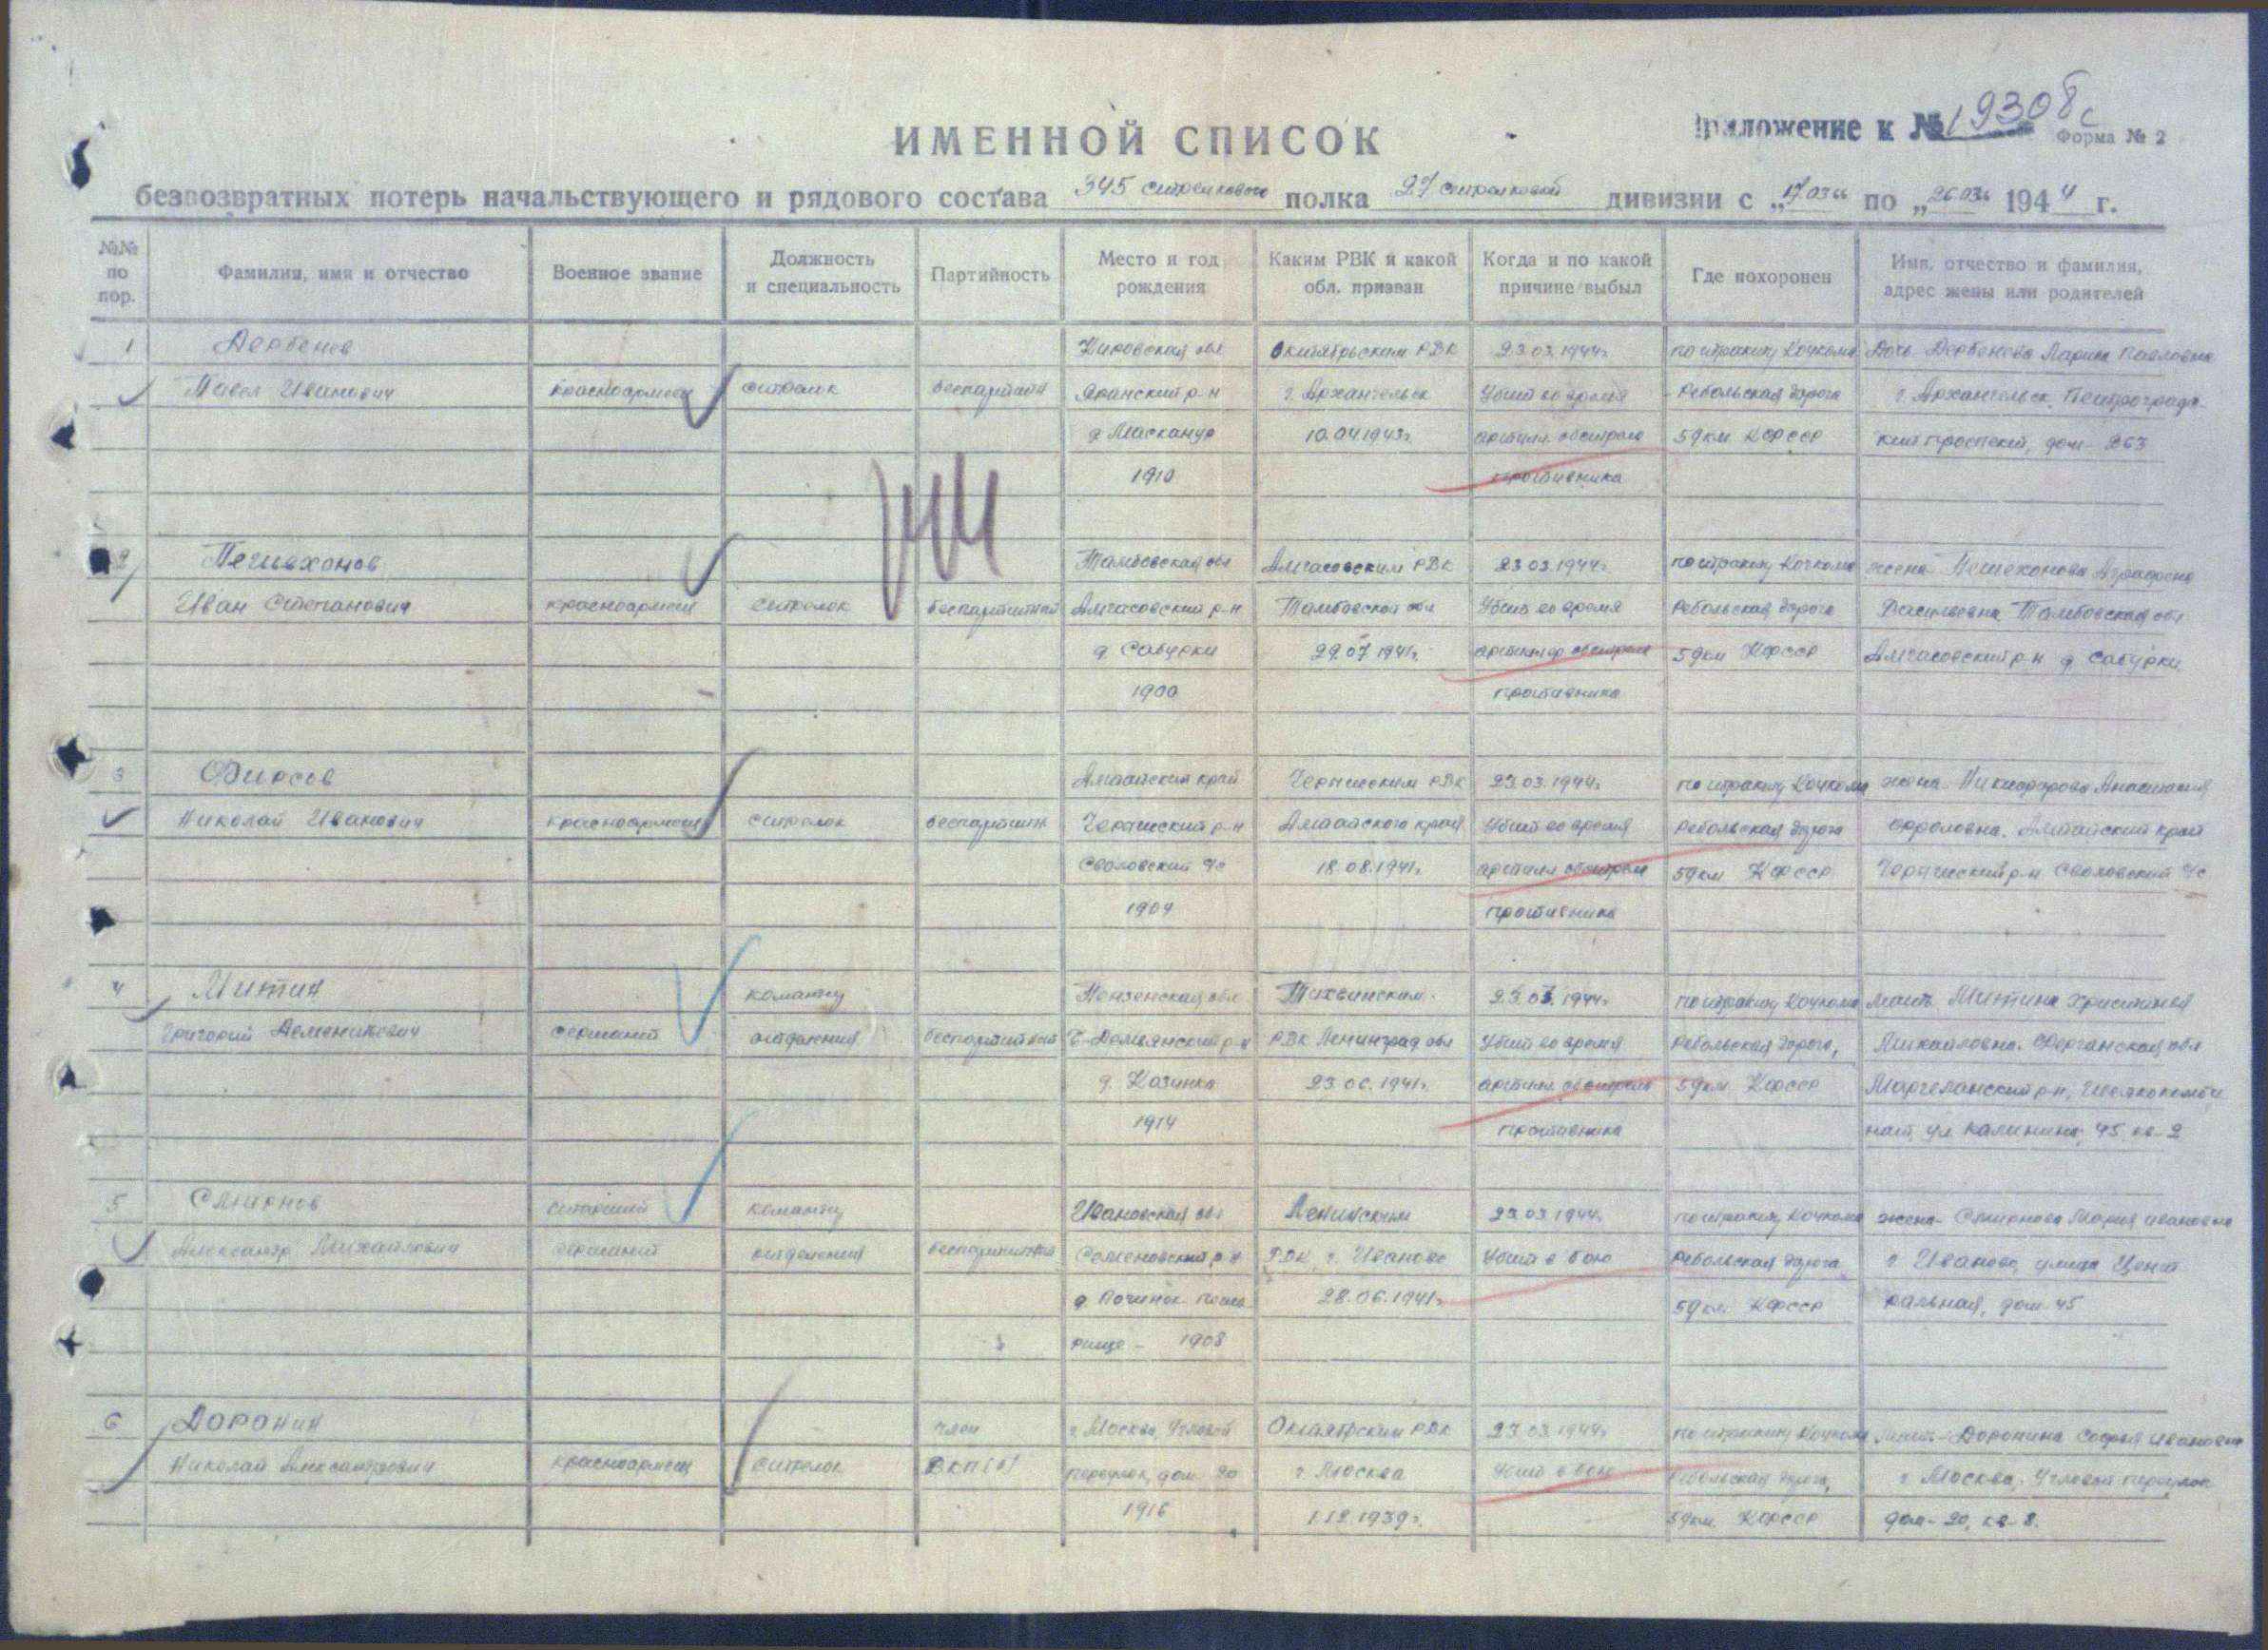 Приложение к № 19308с
Форма № 2
ИМЕННОЙ СПИСОК
безвозвратных потерь начальствующего и рядового состава 345 стрелкового полка 27 стрелковой дивизии с „17.03“ по „26.03“ 1944 г.
№№ по пор.
Фамилия, имя и отчество
Военное звание
Должность и специальность
Партийность
Место и год рождения
Каким РВК и какой обл. призван
Когда и по какой причине выбыл
Где похоронен
Имя, отчество и фамилия, адрес жены или родителей
1 Дербенев Кировская обл Октябрьским РВК 23.03.1944г по тракту Кочкома Дочь Дербенева Павловна
Павел Иванович красноармеец стрелок беспартийн Яранский р-н г. Архангельск Убит во время Ребольская дорога г. Архангельск, Петроградс-
д Масканур 10.04.1943г. артилл. обстрела 59км КФССР кий проспект, дом- 263
1910 противника
2 Пешехонов Тамбовская обл Алгасовским РВК 23.03.1944г по тракту Кочкома жена Пешехонова Аграфена
Иван Степанович красноармеец стрелок беспартийный Алгасовский р-н Тамбовской обл Убит во время Ребольская дорога Васильевна Тамбовская обл
д Сабурки 29.07.1941г. артиллер обстрела 59км КФССР Алгасовский р-н д Сабурки
1900 противника
3 Фирсов Алтайский край РВК 23.03.1944г по тракту Кочкома жена Никифорова Анастасия
Николай Иванович красноармеец стрелок беспартийн р-н Алтайского края Убит во время Ребольская дорога Фроловна. Алтайский край
с/с 18.08.1941г. артилл обстрела 59км КФССР р-н с/с
1904 противника
4 Митин команду Пензенская обл Тихвинским 23.03.1944г по тракту Кочкома мать Митина
Григорий сержант отделения беспартийный р-н РВК Ленинград обл Убит во время Ребольская дорога, Михайловна. Ферганская обл
д. Козинка 23.06.1941г. артилл. обстрела 59км КФССР Маргеланский р-н, Шелкокомби
1914 противника нат, ул Калинина, 45 кв-2
5 Смирнов старший команду Ивановская обл Ленинским 23.03.1944г по тракту Кочкома жена- Смирнова Мария Ивановна
Александр Михайлович сержант отделения беспартийный Семеновский р-н РВК, г. Иваново Убит в бою Ребольская дорога г Иваново, улица Цент
д Починок 28.06.1941г 59км КФССР ральная, дом-45
рище - 1908
6 Доронин член г. Москва, Угловой Октябрьским РВК 23.03.1944г по тракту Кочкома мать- Доронина София Ивановна
Николай Александрович красноармеец стрелок ВКП(б) переулок, дом 20 г Москва Убит в бою Ребольская дорога, г Москва. Угловой переулок
1916 1.12.1939г. 59км. КФССР дом-20, кв-8.